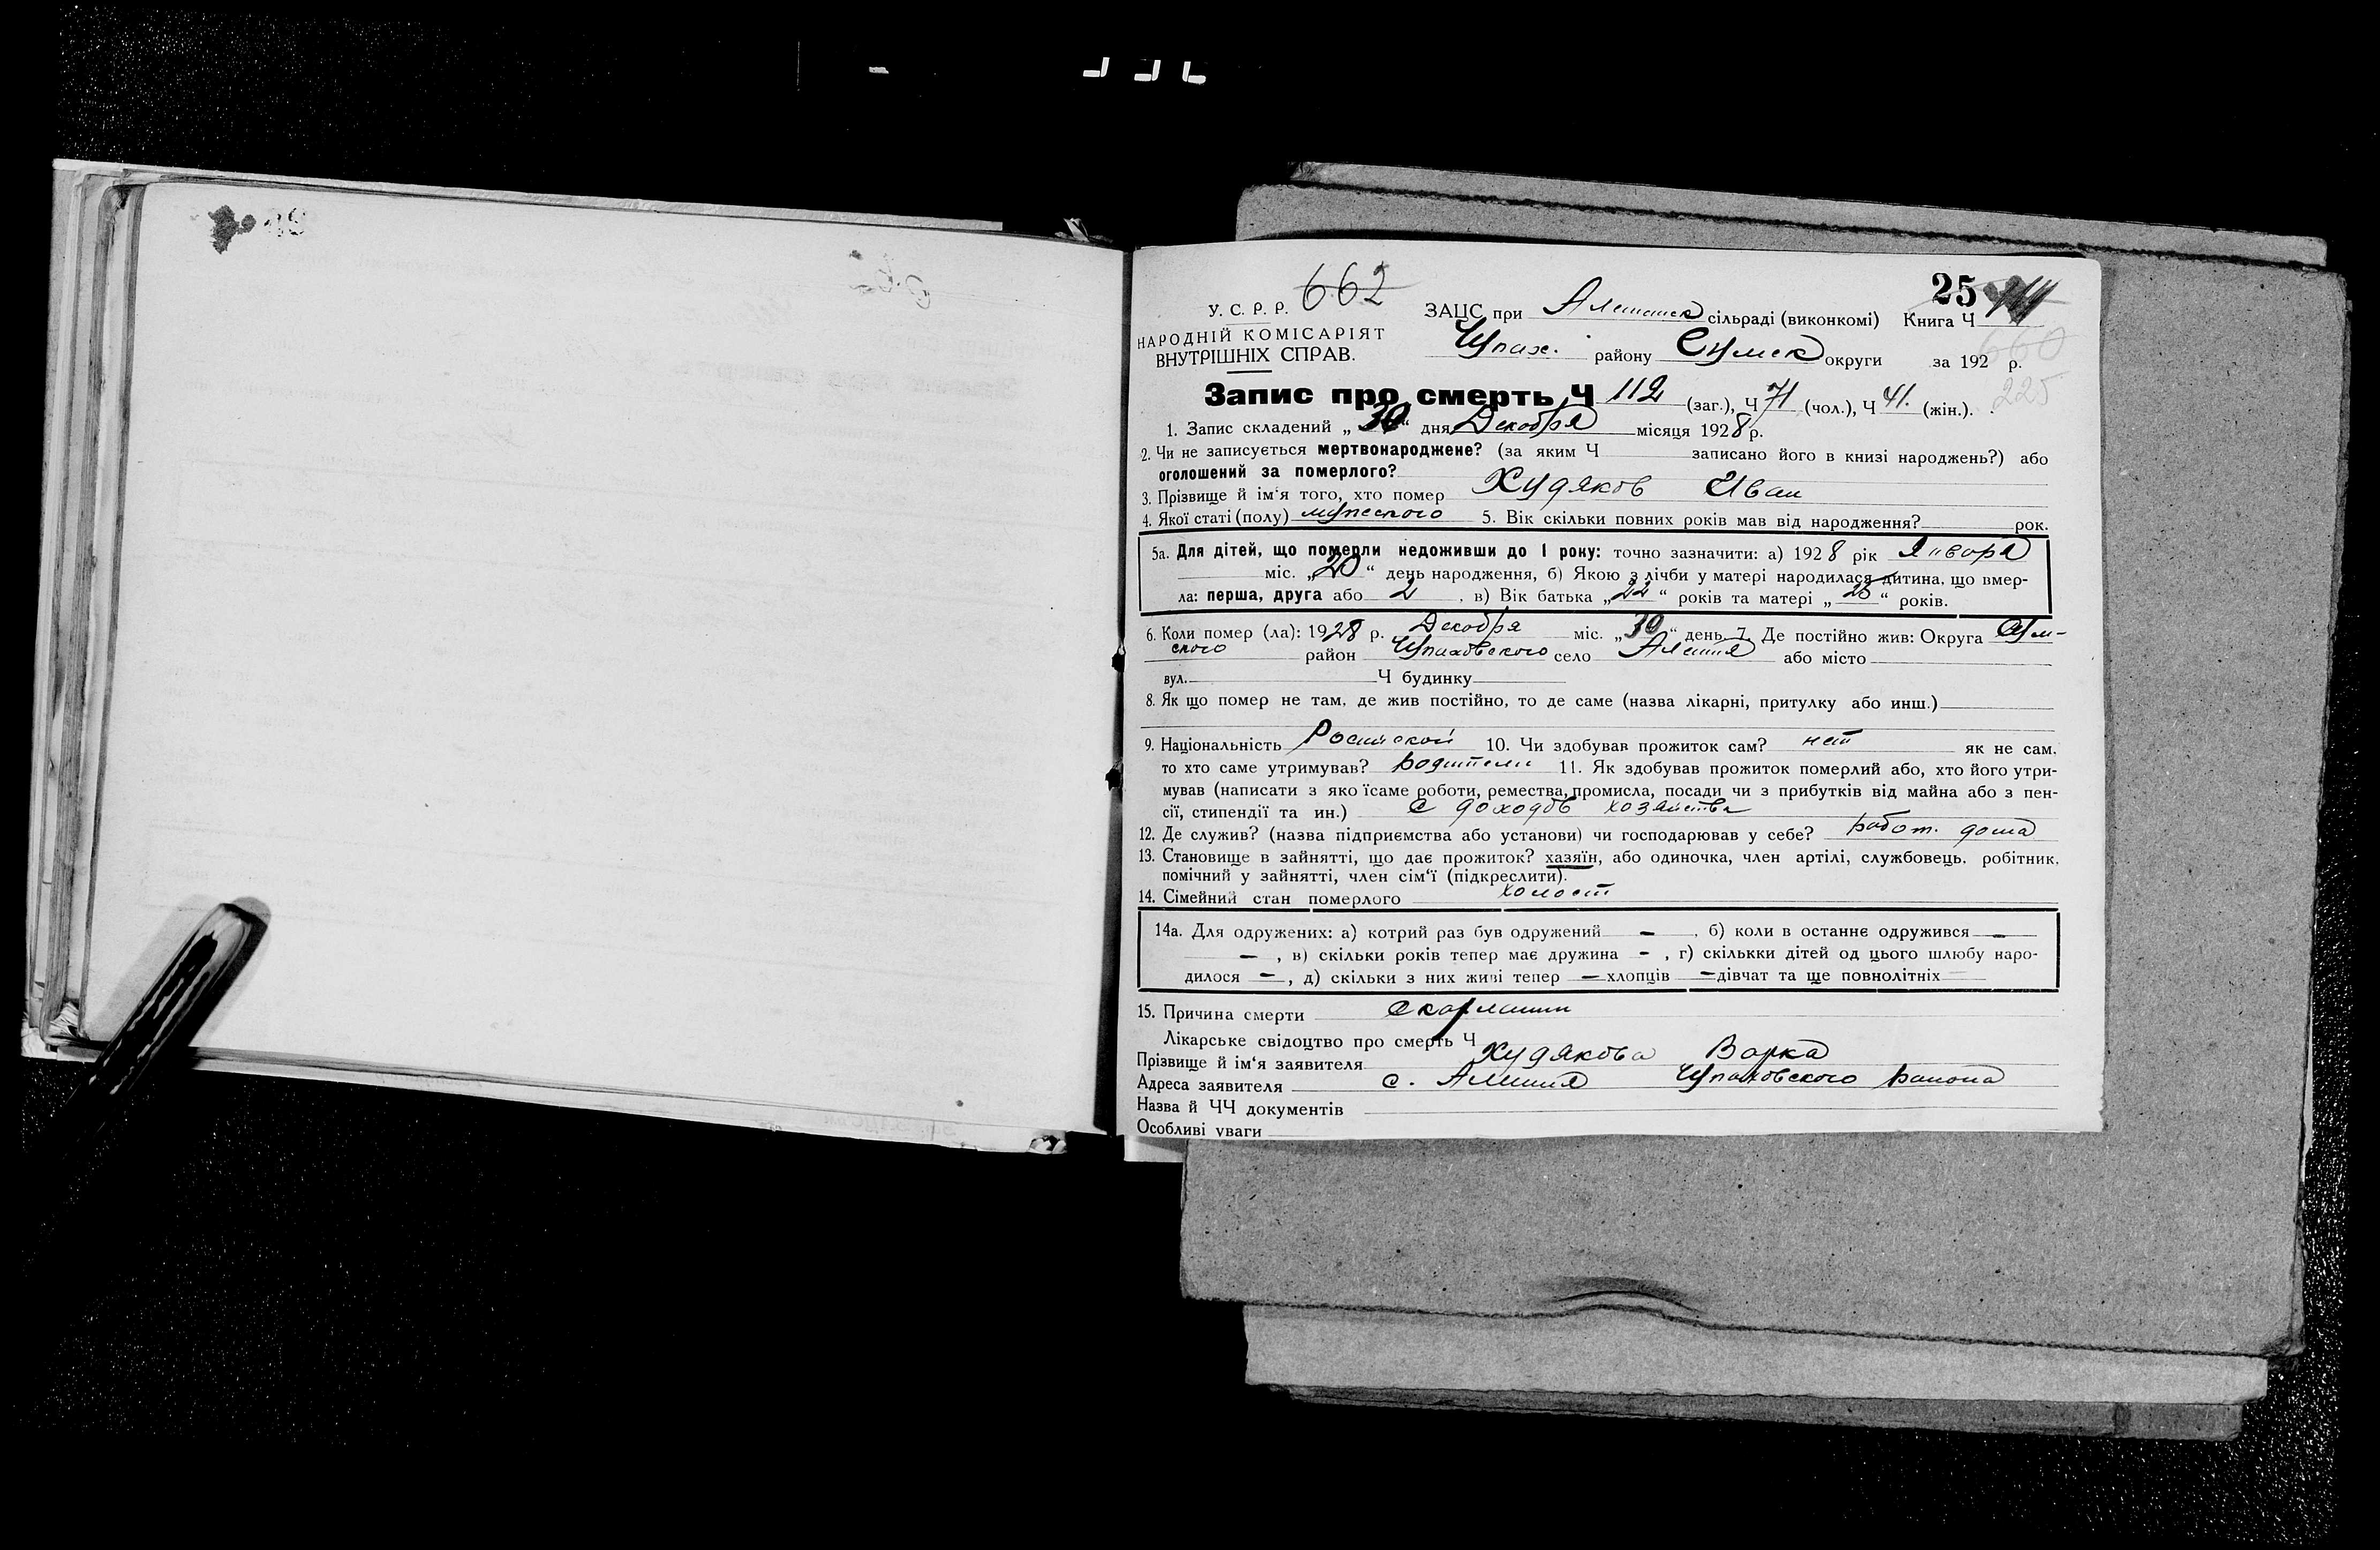 25
662
У. С. Р. Р.
НАРОДНІЙ КОМІСАРІЯТ
ВНУТРІШНІХ СПРАВ.
ЗАЦС при сільраді (виконкомі) Книга Ч
Упах. району Сумск округи за 192 р.
660
225
Запис про смерть Ч 112 (заг.), Ч 71 (чол.), Ч 41. (жін.).
1. Запис складений „30“ дня Декобря місяця 1928 р.
2. Чи не записується мертвонароджене? (за яким Ч записано його в книзі народжень?) або
оголошений за померлого?
3. Прізвище й ім‘я того, хто помер Худяков Иван
4. Якої статі (полу) мужеского 5. Вік скільки повних років мав від народження? рок.
5а. Для дітей, що померли недоживши до 1 року: точно зазначити: а) 1928 рік Январа
міс. „20“ день народження, б) Якою з лічби у матері народилася дитина, що вмер-
ла: перша, друга або 2, в) Вік батька „22“ років та матері „25“ років.
6. Коли помер (ла): 1928 р. Декобря міс. „30“ день. 7. Де постійно жив: Округа Сум-
ского район Упаховского село Алешня або місто
вул. Ч будинку
8. Як що помер не там, де жив постійно, то де саме (назва лікарні, притулку або инш.)
9. Національність 10. Чи здобував прожиток сам? нет як не сам,
то хто саме утримував? родители 11. Як здобував прожиток померлий або, хто його утри-
мував (написати з яко їсаме роботи, ремества, промисла, посади чи з прибутків від майна або з пен-
сії, стипендії та ин.) с доходов хозяйства
12. Де служив? (назва підприємства або установи) чи господарював у себе? работ. дома
13. Становище в зайнятті, що дає прожиток? хазяїн, або одиночка, член артілі, службовець, робітник,
помічний у зайнятті, член сім‘ї (підкреслити).
14. Сімейний стан померлого холост
14а. Для одружених: а) котрий раз був одружений — , б) коли в останнє одружився —
— , в) скільки років тепер має дружина — , г) скількки дітей од цього шлюбу наро-
дилося — , д) скільки з них живі тепер — хлопців — дівчат та ще повнолітніх
15. Причина смерти Скарлатин
Лікарське свідоцтво про смерть Ч
Прізвище й ім‘я заявителя Худякова Варка
Адреса заявителя с. Алешня Упаховского района
Назва й ЧЧ документів
Особливі уваги